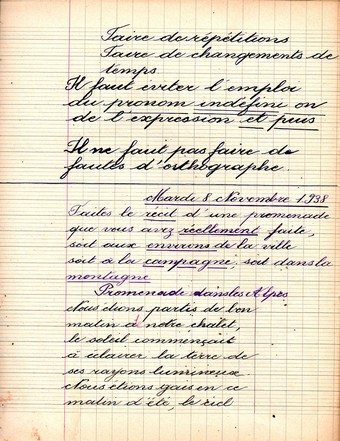 Faire de répétitions
Faire de changements de
temps
Il faut eviter l'emploi
du pronom indéfini on
de l'expression et puis
Il ne faut pas faire de
fautes d'orthographe.
Mardi 8 Novembre 1938
Faites le récit d'une promenade
que vous avez réellement faite,
soit aux environs de la ville
soit à la campagne, soit dans la
montagne
Promenade dans les Alpes
Nous étions partis de bon
matin à notre chalet,
le soleil commençait
à éclairer la terre de
ses rayons lumineux
Nous étions gais en ce
matin d'été, le ciel